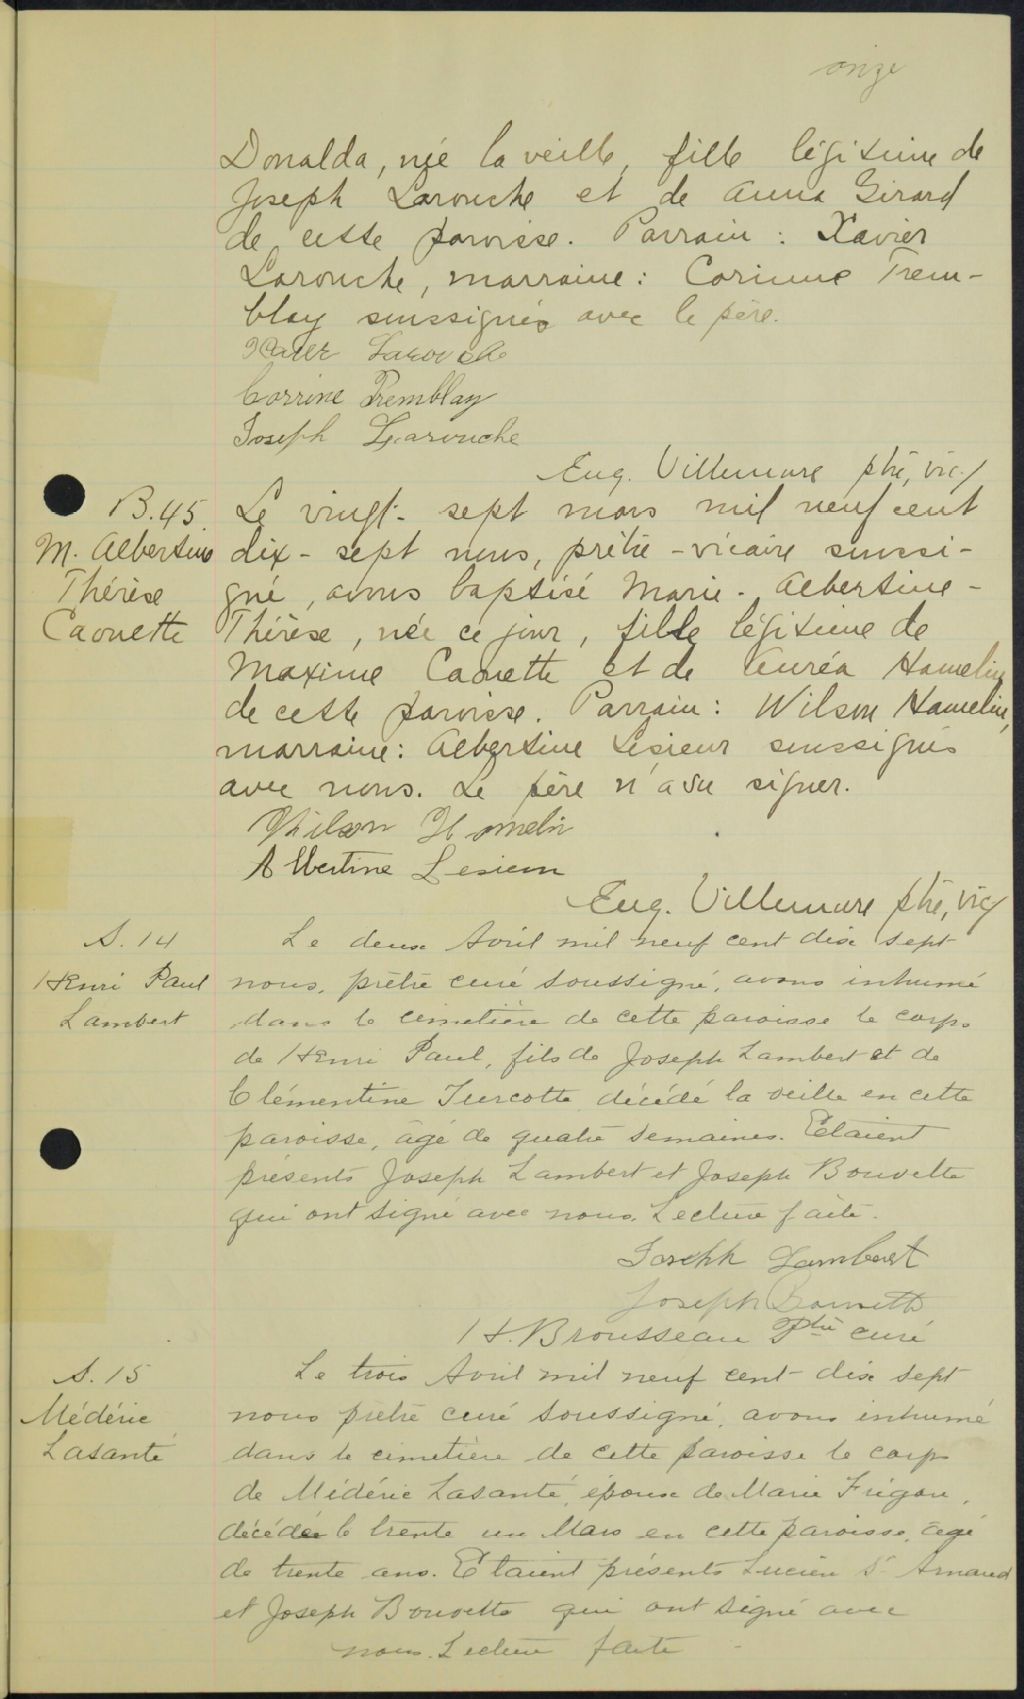 onze
Donalda, née la veille, fille légitime de
Joseph Larouche et de Anna Girard
de cette paroisse. Parrain : Xavier
Larouche, marraine : Corinne Trem-
blay soussignés avec le père.
Xavier Larouche
Corrine Tremblay
Joseph Larouche
Eug. Villemure ptre, vic.
B. 45
M. Albertine
Thérèse
Caouette
Le vingt-sept mars mil neuf cent
dix-sept nous, prêtre-vicaire soussi-
gné, avons baptisé Marie-Albertine-
Thérèse, née ce jour, fille légitime de
Maxime Caouette et de Auréa Hamelin
de cette paroisse. Parrain : Wilson Hamelin,
marraine : Albertine Lesieur soussignés
avec nous. Le père n'a su signer.
Wilson Hamelin
Albertine Lesieur
Eug. Villemure ptre, vic
S. 14
Henri Paul
Lambert
Le deux Avril mil neuf cent dix sept
nous, prêtre curé soussigné, avons inhumé
dans le cimetière de cette paroisse le corps
de Henri Paul, fils de Joseph Lambert et de
Clémentine Turcotte décédé la veille en cette
paroisse, âgé de quatre semaines. Etaient
présents Joseph Lambert et Joseph Bouvette
qui ont signé avec nous. Lecture faite.
Joseph Lambert
Joseph
H. Brousseau Ptre curé
S. 15
Médéric
Lasanté
Le trois Avril mil neuf cent dix sept
nous prêtre curé soussigné, avons inhumé
dans le cimetière de cette paroisse le corps
de Médéric Lasanté, époux de Marie Frigon,
décédé le trente un Mars en cette paroisse, âgé
de trente ans. Etaient présents Lucien St Arnaud
et Joseph Bouvette qui ont signé avec
nous. Lecture faite